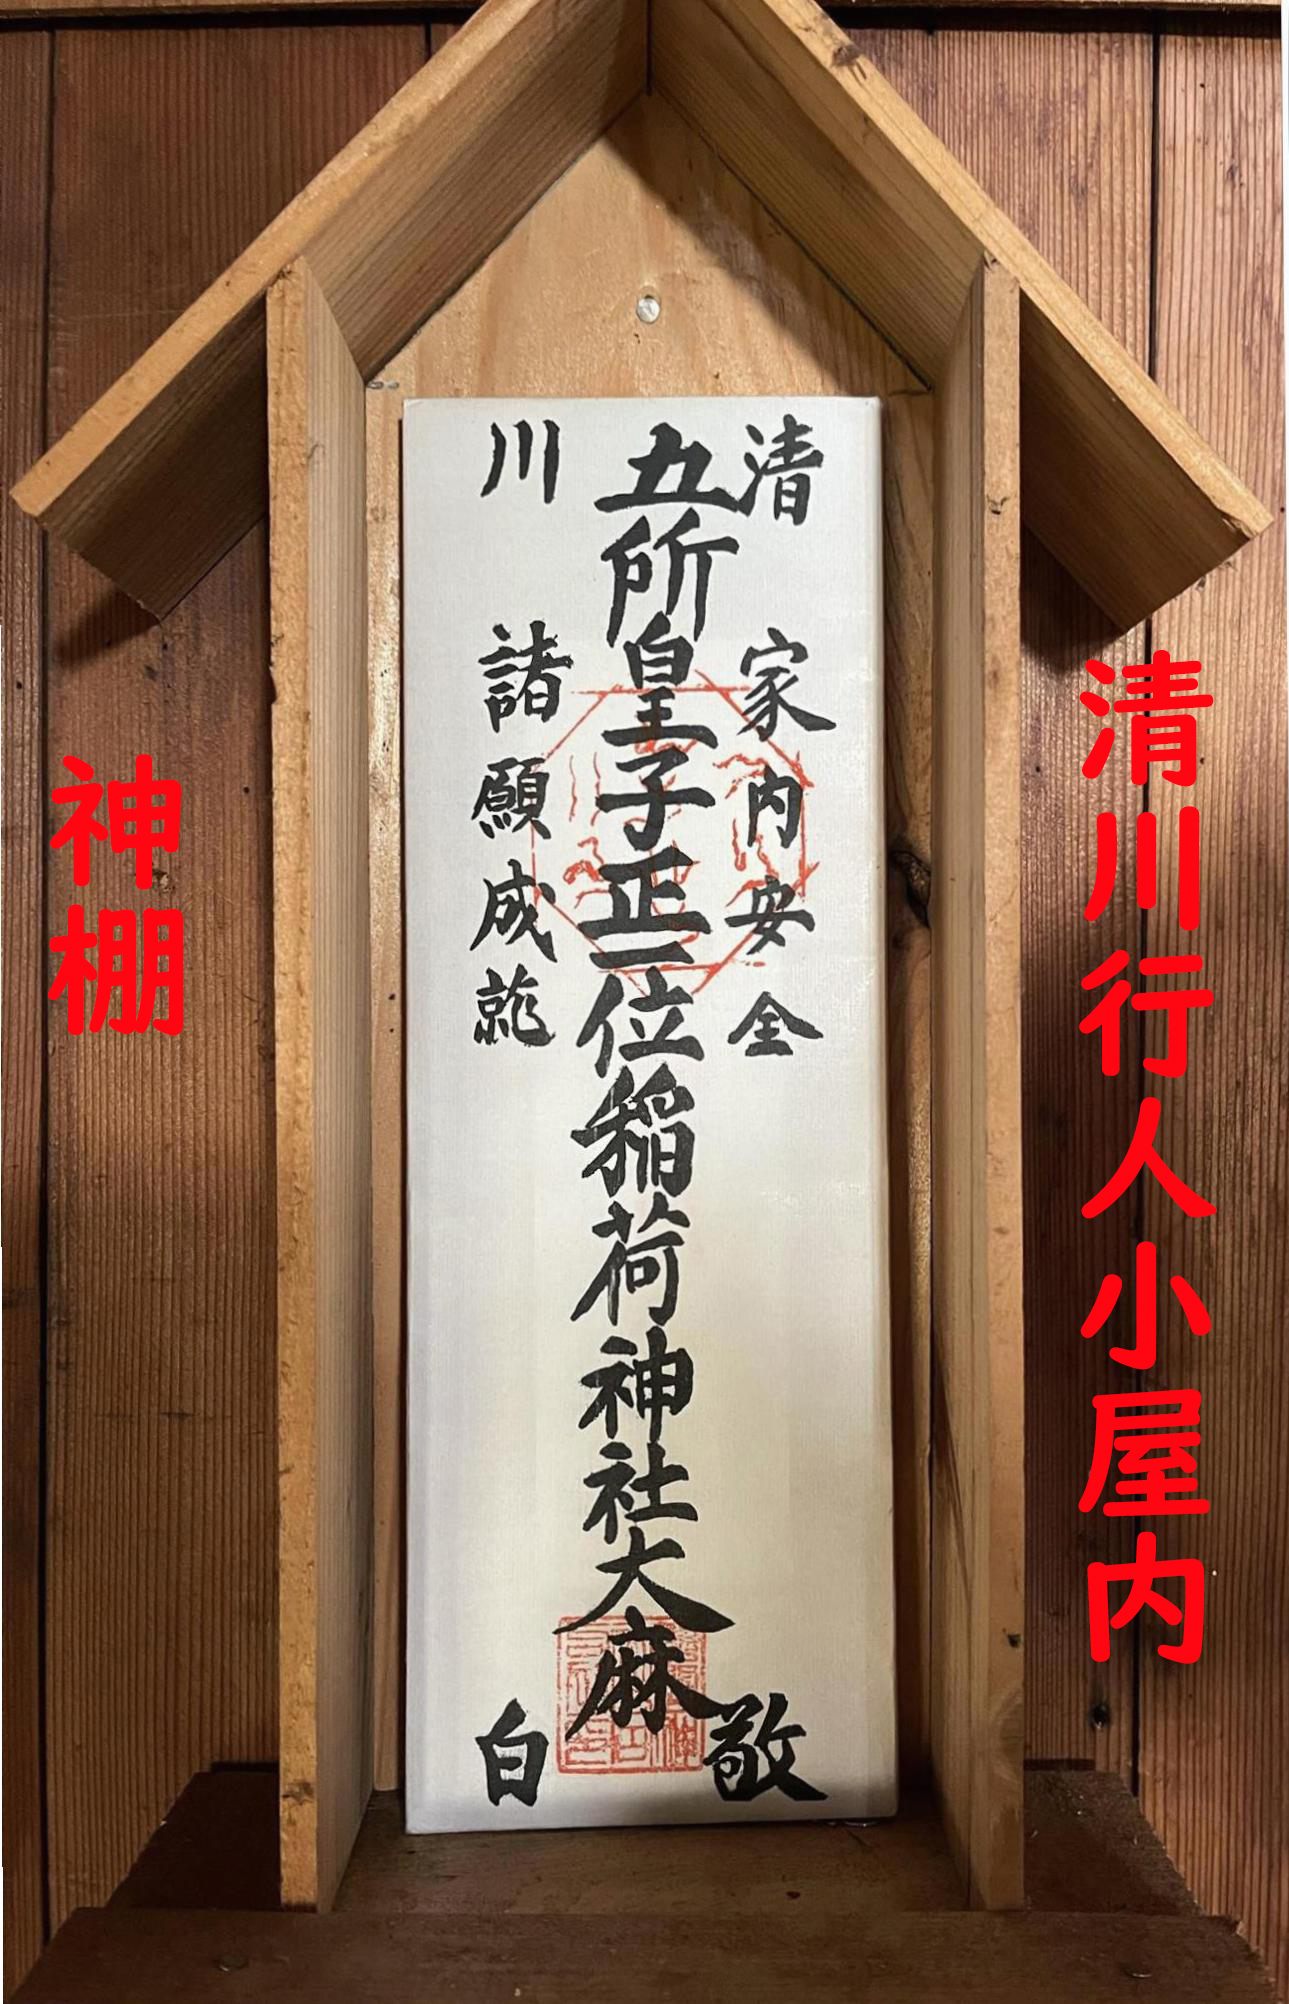 清川行人小屋内
清 家内安全 敬
五所皇子正一位稲荷神社大麻
川 諸願成就 白
神棚